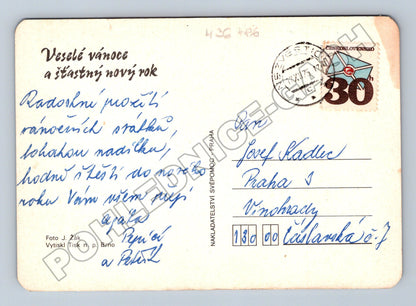 436 486
Veselé vánoce
a šťastný nový rok
ČESKOSLOVENSKO
30
Radostné prožití
vánočních svátků,
bohatou nadílku,
hodně štěstí do nového
roku Vám všem přejí
Pepíci
a
Foto J. Žák
Vytiskl Tisk n. p. Brno
NAKLADATELSTVÍ SVÉPOMOC - PRAHA
Josef Kadlec
Praha 3
Vinohrady
130 00 Čáslavská č. 7
POHLEDNICE-CIMRH